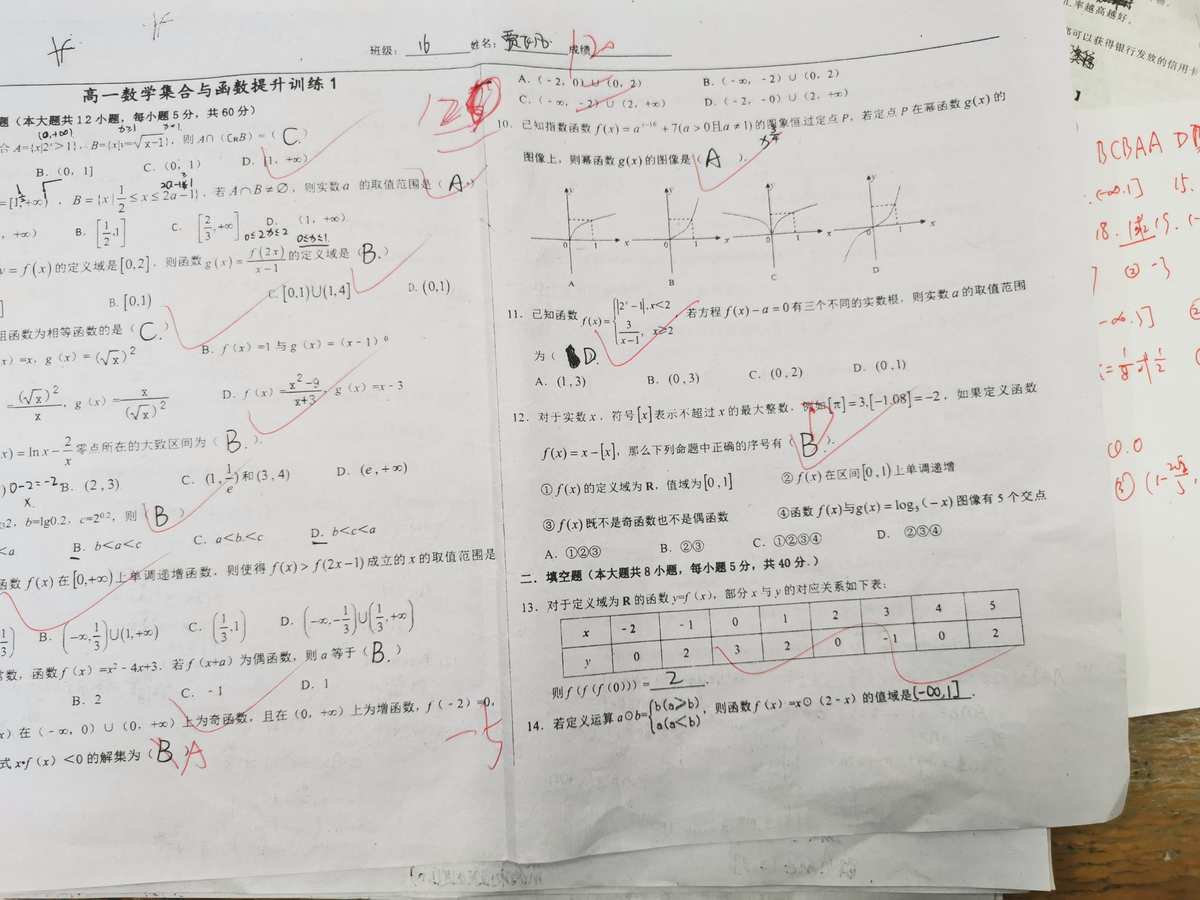 班级：16 姓名： 成绩 120
高一数学集合与函数提升训练1
题（本大题共12小题，每小题5分，共60分）
合A={x|2ˣ>1}，B={x|y=√(x-1)}，则A∩（∁ʀB）=（ C. ）
B.（0，1] C.（0，1） D. [1，+∞）
=[1,+∞），B={x|1/2≤x≤2a-1}，若A∩B≠∅，则实数a 的取值范围是（ A. ）
，+∞） B. [1/2,1] C. [2/3,+∞ D. （1，+∞）
0≤2x≤2 0≤x≤1
y=f(x)的定义域是[0,2]，则函数g(x)=f(2x)/(x-1)的定义域是（ B. ）
] B. [0,1) C. [0,1)∪(1,4] D. (0,1)
组函数为相等函数的是（ C. ）
x）=x，g（x）=(√x)² B. f（x）=1与g（x）=（x-1）⁰
=(√x)²/x，g（x）=x/(√x)² D. f（x）=(x²-9)/(x+3)，g（x）=x-3
x)=lnx-2/x零点所在的大致区间为（ B. ）.
) 0-2=-2 B. (2,3) C. (1,1/e)和(3,4) D. (e,+∞)
2，b=lg0.2，c=2⁰·²，则（ B ）
<a B. b<a<c C. a<b.<c D. b<c<a
函数f(x)在[0,+∞)上单调递增函数，则使得f(x)>f(2x-1)成立的x的取值范围是
1/3) B. (-∞,1/3)∪(1,+∞) C. (1/3,1) D. (-∞,-1/3)∪(1/3,+∞)
常数，函数f（x）=x²-4x+3．若f（x+a）为偶函数，则a等于（ B. ）
B. 2 C. -1 D. 1
x）在（-∞，0）∪（0，+∞）上为奇函数，且在（0，+∞）上为增函数，f（-2）=0，
式x•f（x）<0的解集为（ B ）A
-5
A.（-2，0）∪（0，2） B.（-∞，-2）∪（0，2）
C.（-∞，-2）∪（2，+∞） D.（-2，-0）∪（2，+∞）
10. 已知指数函数f(x)=aˣ⁻¹⁶+7(a>0且a≠1)的图象恒过定点P，若定点P在幂函数g(x)的
图像上，则幂函数g(x)的图像是（ A ）.
y y y y
0 1 x 0 1 x 0 1 x 0 1 x
A B C D
11. 已知函数f(x)={|2ˣ-1|,x<2 3/(x-1), x≥2，若方程f(x)-a=0有三个不同的实数根，则实数a的取值范围
为（ D. ）
A. (1,3) B. (0,3) C. (0,2) D. (0,1)
12. 对于实数x，符号[x]表示不超过x的最大整数，例如[π]=3,[-1.08]=-2，如果定义函数
f(x)=x-[x]，那么下列命题中正确的序号有（ B. ）
①f(x)的定义域为R，值域为[0,1] ②f(x)在区间[0,1)上单调递增
③f(x)既不是奇函数也不是偶函数 ④函数f(x)与g(x)=log₅(-x)图像有5个交点
A. ①②③ B. ②③ C. ①②③④ D. ②③④
二、填空题（本大题共8小题，每小题5分，共40分．）
13. 对于定义域为R的函数y=f（x），部分x与y的对应关系如下表：
x -2 -1 0 1 2 3 4 5
y 0 2 3 2 0 -1 0 2
则f(f(f(0)))= 2 .
14. 若定义运算a⊙b={b(a≥b) a(a<b)，则函数f（x）=x⊙（2-x）的值域是(-∞,1].
率越高越好。
可以获得银行发放的信用卡
BCBAA D
(-∞.1] 15.
② -3
-∞.5]